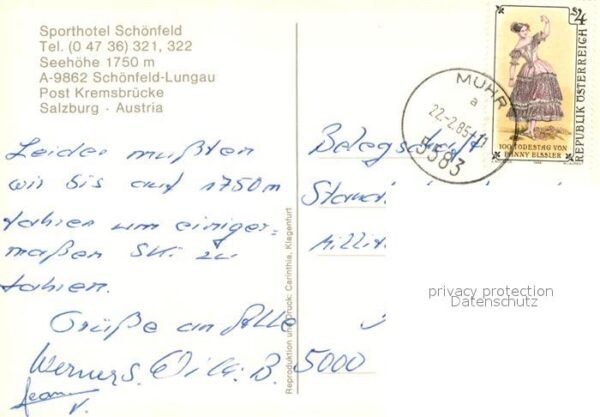 Sporthotel Schönfeld
Tel. (0 47 36) 321, 322
Seehöhe 1750 m
A-9862 Schönfeld-Lungau
Post Kremsbrücke
Salzburg · Austria
Leider mußten
wir bis auf 1750m
fahren um einiger=
maßen Ski zu
fahren.
Grüße an Alle
Werner S.
B. 5000
Reproduktion und Druck: Carinthia, Klagenfurt
S 4
REPUBLIK ÖSTERREICH
100. TODESTAG VON
FANNY ELSSLER
MUHR
a
22.-2.85-11
5583
Belegschaft
privacy protection
Datenschutz